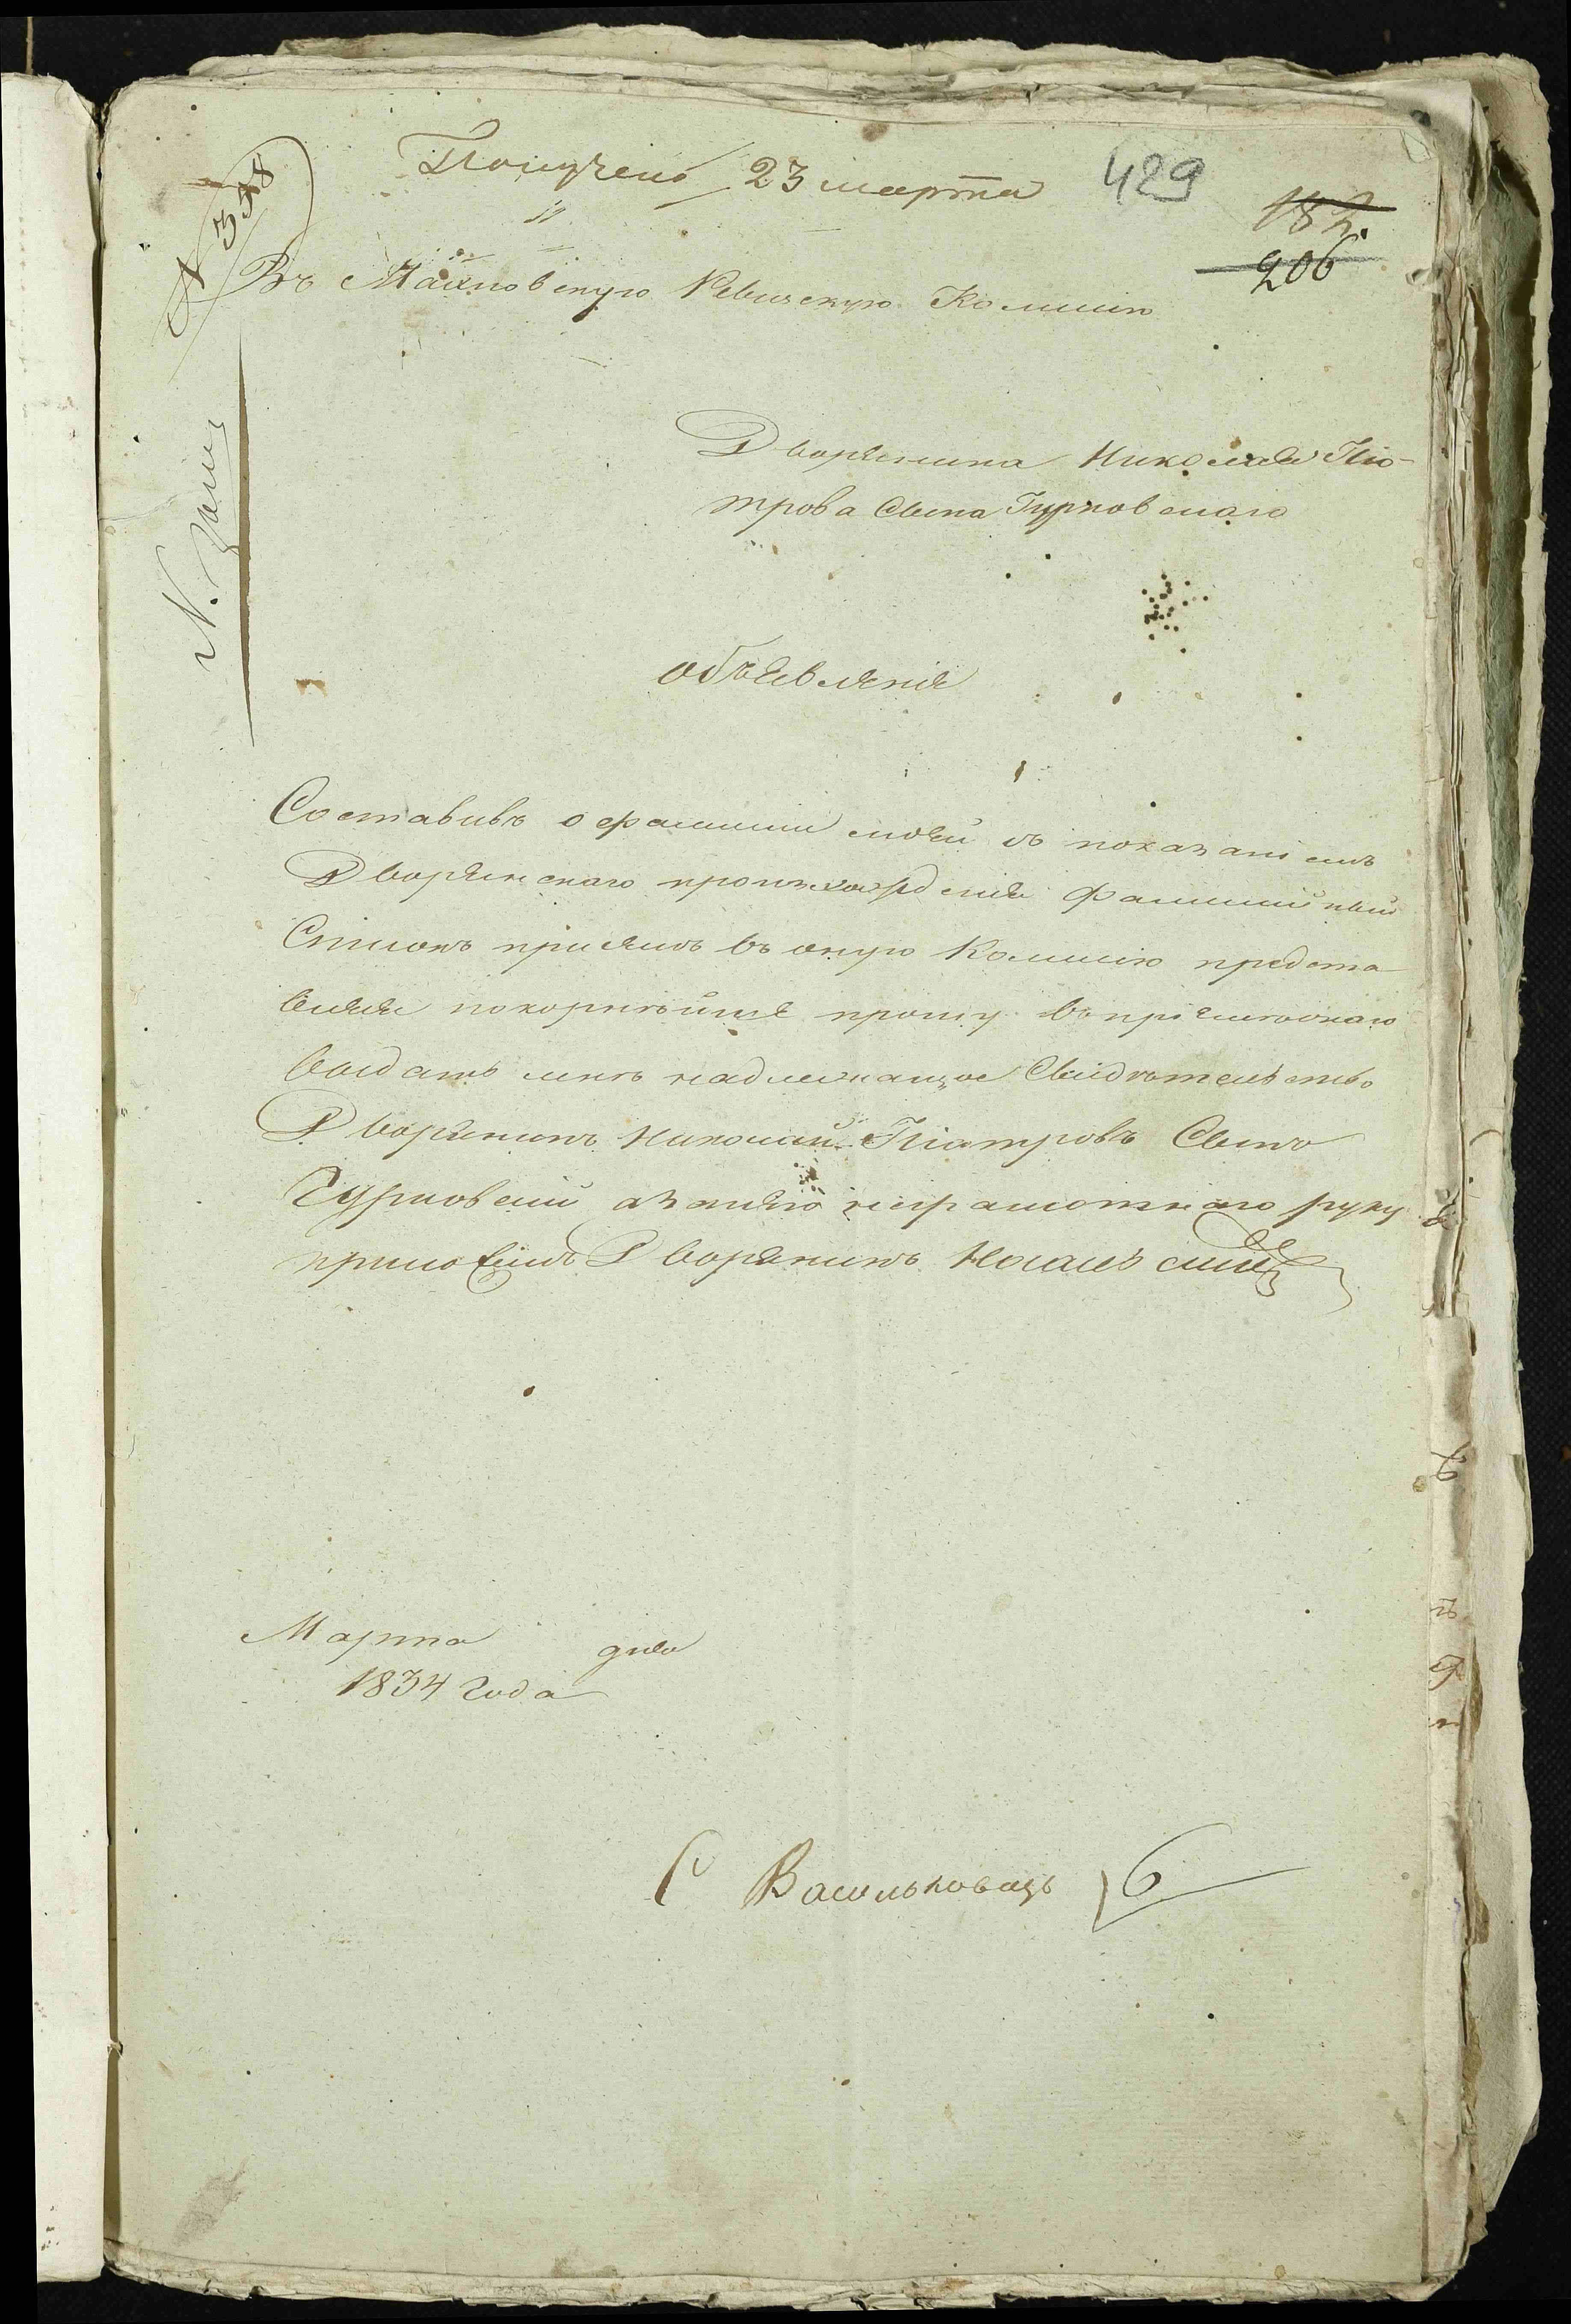 Получено 23 марта
429
182.
206
№ 398
Въ Махновскую Ревизскую Комисію
N. Заш
Дворянина Николая Піо-
трова Сына Гурковскаго
объявленіе
Составивъ о фамиліи моей съ показаніемъ
Дворянскаго происхожденія Фамилійный
Списокъ при семъ въ оную Комисію предста
вляя покорнѣйше прошу въ пріемѣ онаго
выдать мнѣ надлежащое Свидѣтельство
Дворянинъ Николай Піотровъ Сынъ
Гурковскій а за него неграмотнаго руку
приложилъ Дворянинъ
Марта дня
1834 года
С Васильковецъ 6